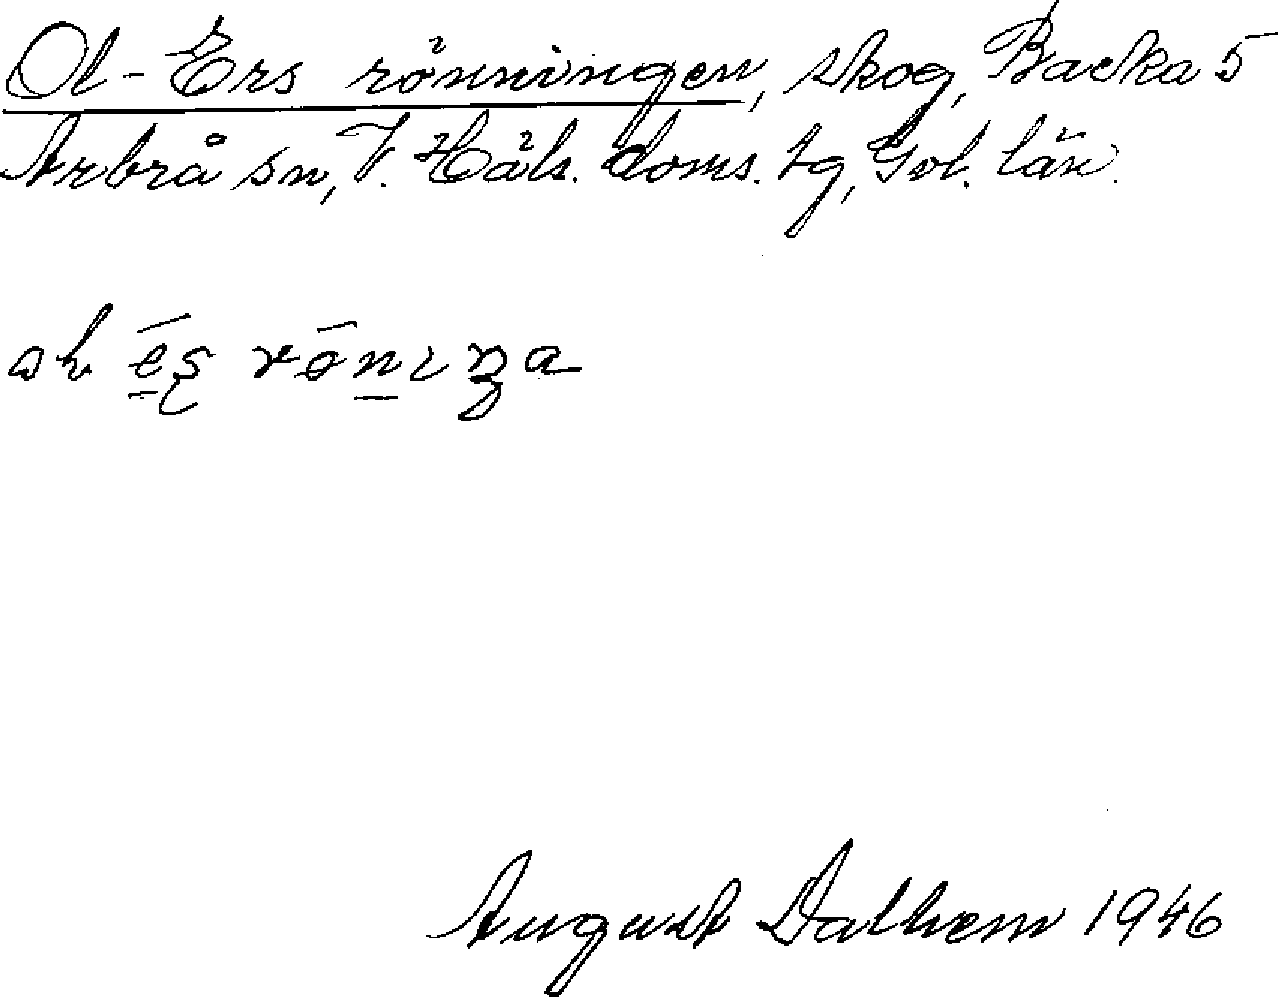 Ol-Ers rönningen, skog, Backa 5
Arbrå sn, V. Häls. doms. tg, Gvl. län.
August Dalhem 1946